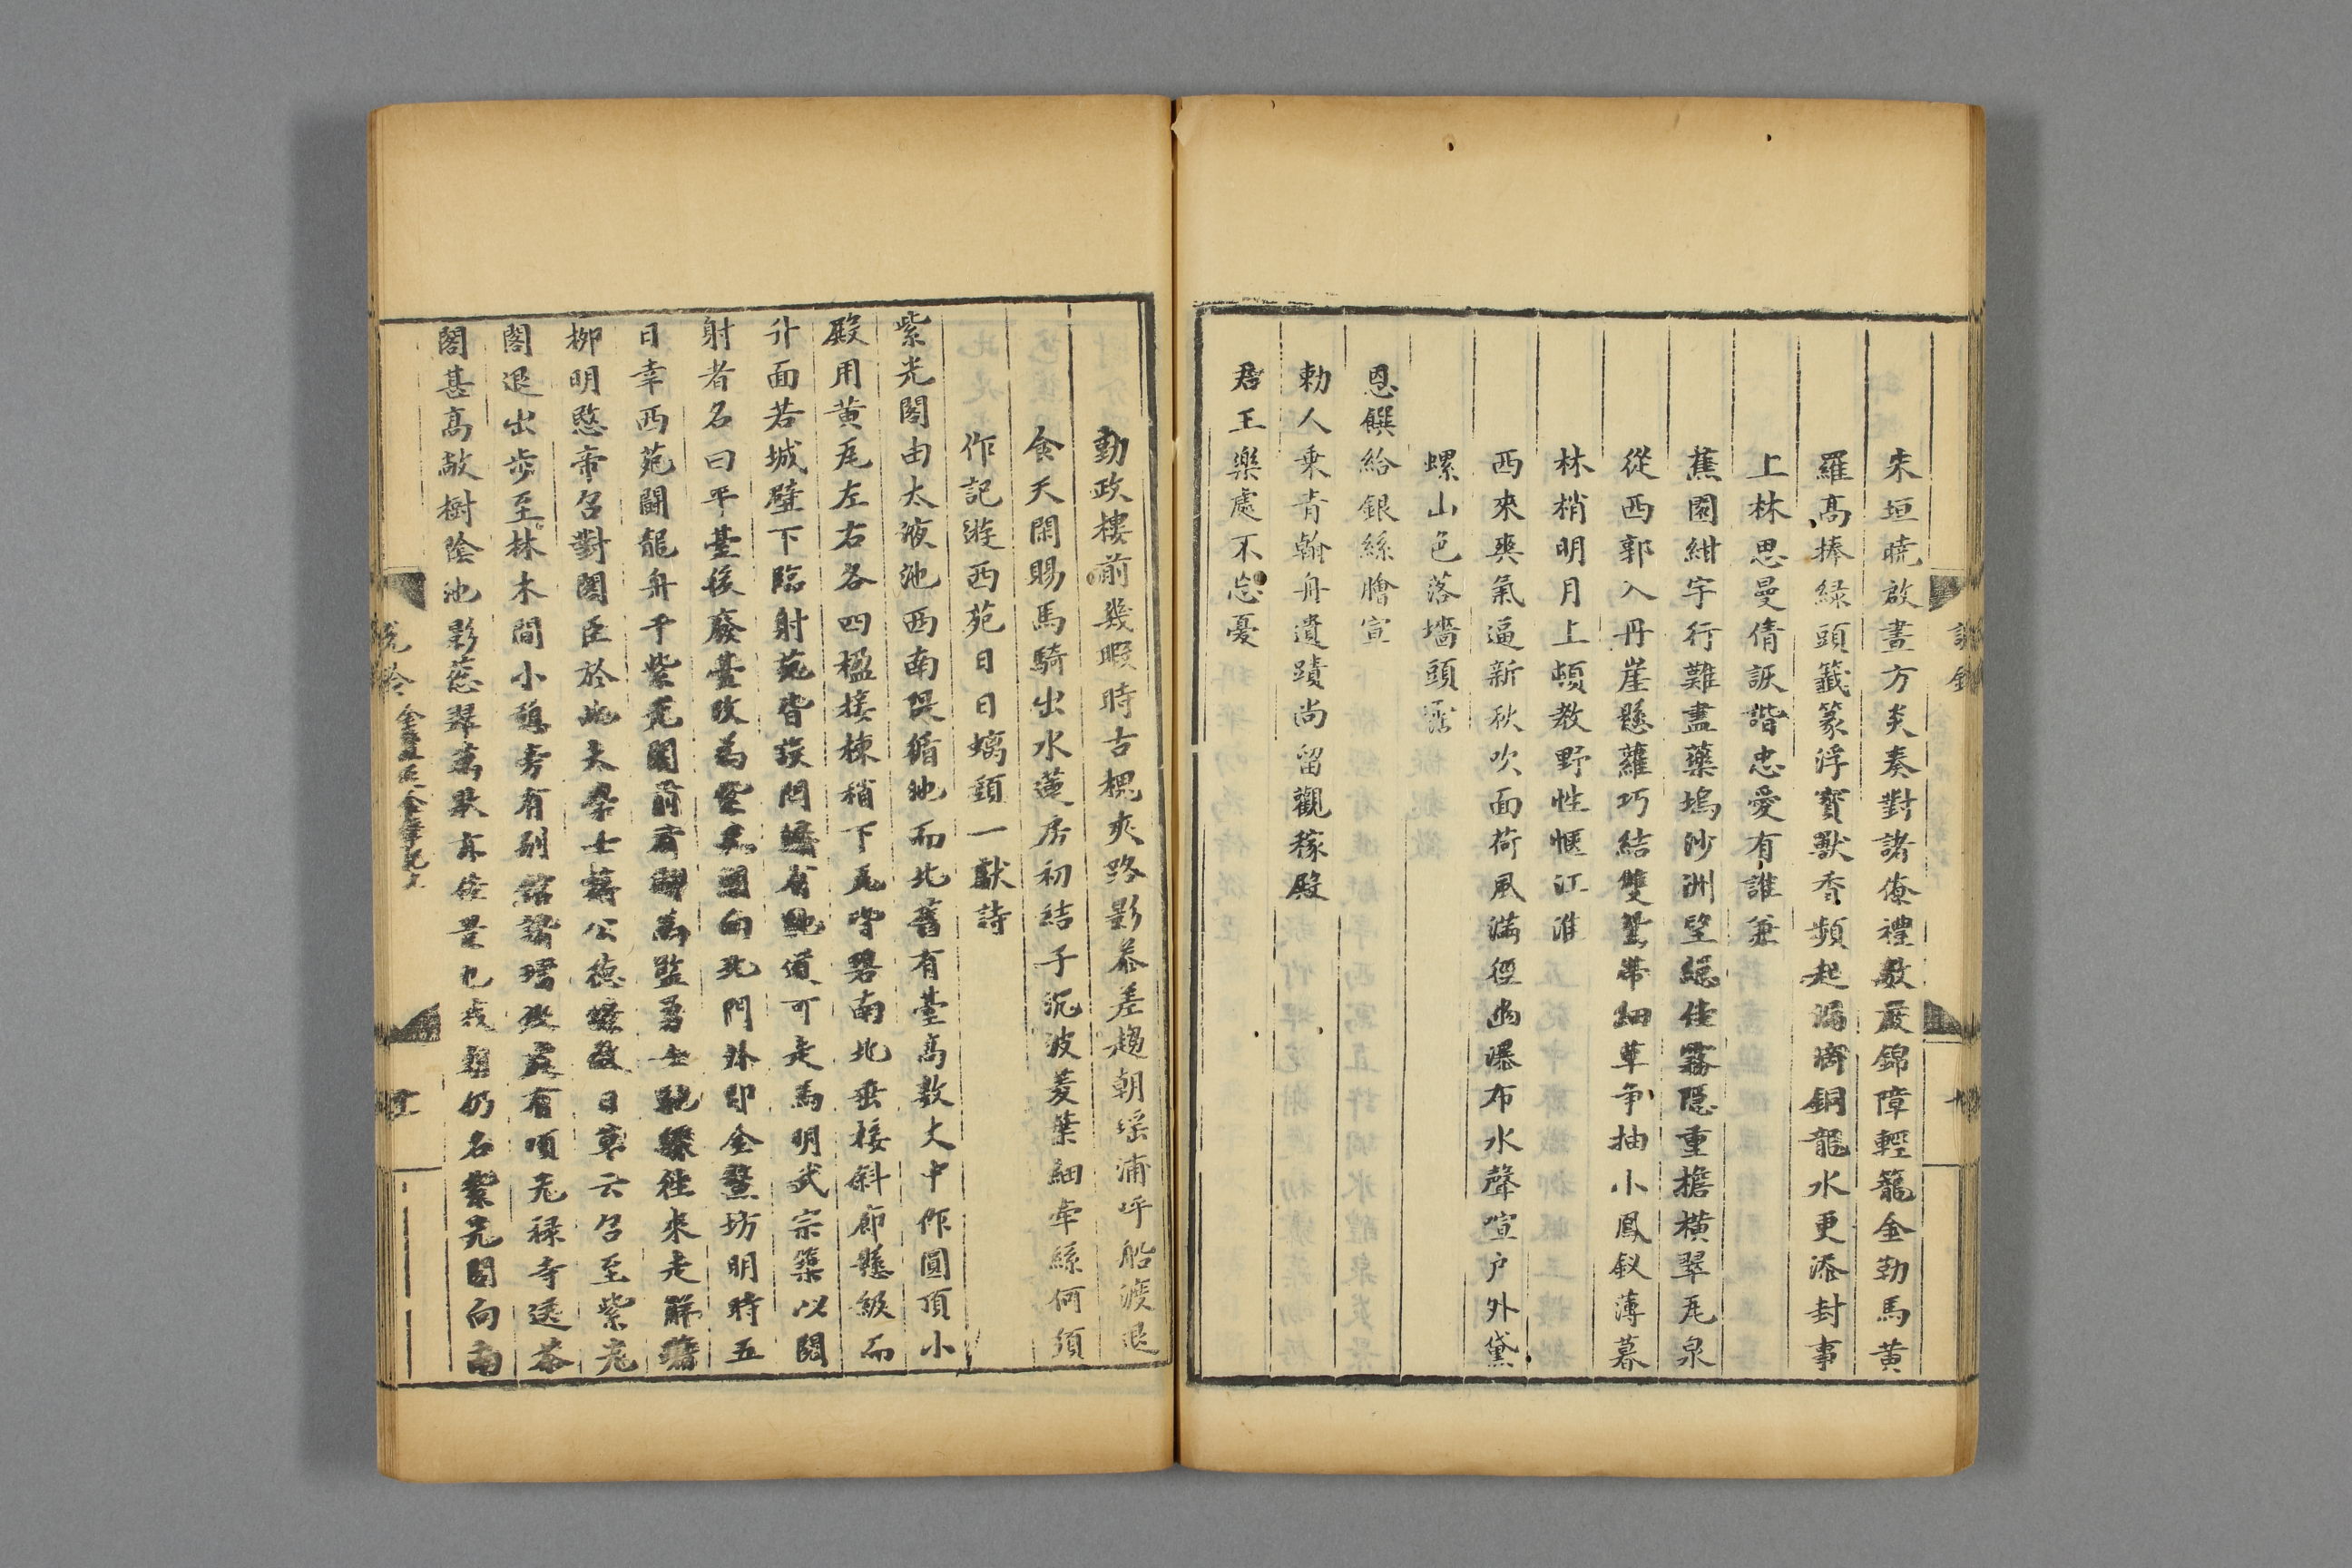 朱垣曉啟晝方炎奏對諸僚禮數嚴錦障輕籠金勒馬黄
羅髙捧緑頭籖篆浮寳獸香頻起漏滴銅龍水更添封事
上林思曼倩詼諧忠愛有誰兼
蕉園紺宇行難盡藥塢沙洲望絕佳霧隱重檐橫翠瓦泉
從西郭入丹崖懸蘿巧結雙鸞帶細草争抽小鳳釵薄暮
林梢明月上頓教野性愜江淮
西來爽氣逼新秋吹面荷風滿徑幽瀑布水聲喧户外黛
螺山色落墻頭
恩饌給銀絲膾宣
勅人乗青翰舟遺蹟尚留觀稼殿
君王樂處不忘憂
勤政樓前幾暇時古槐夾路影叅差趨朝瑶浦呼船渡退
食天閑賜馬騎出水蓮房初結子沉波菱葉細牽絲何須
作記遊西苑日日螭頭一獻詩
紫光閣由太液池西南隄循池而北舊有臺高數丈中作圓頂小
殿用黄瓦左右各四楹接棟稍下瓦皆碧南北垂接斜廊懸級而
升面若城壁下臨射苑皆設門牖有馳道可走馬明武宗築以閱
射者名曰平臺後廢臺改為紫光閣向北門外卽金鰲坊明時五
日幸西苑鬬龍舟于紫光閣前看御馬監勇士馳驟往來走解𨇾
柳明愍帝召對閣臣於此大學士蔣公德璟敬日草云召至紫光
閣退出步至林木間小憩旁有别館諸璫数處有頃光禄寺送茶
閣甚髙敞樹陰池影葱翠萬狀眞佳景也我朝仍名紫光閣向南